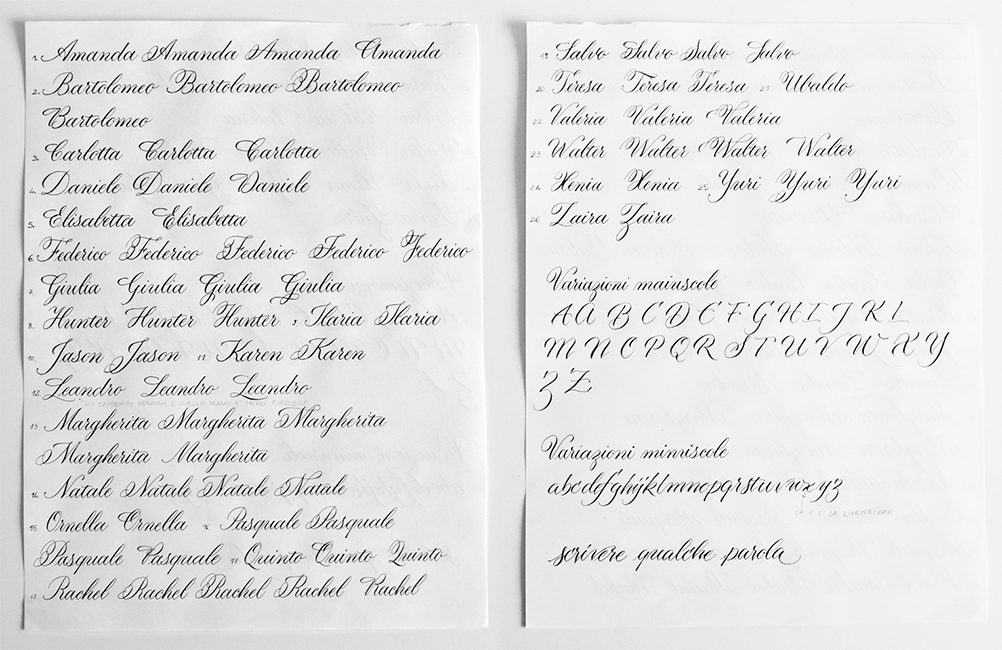 1. Amanda Amanda Amanda Amanda
2. Bartolomeo Bartolomeo Bartolomeo
Bartolomeo
3. Carlotta Carlotta Carlotta
4. Daniele Daniele Daniele
5. Elisabetta Elisabetta
6. Federico Federico Federico Federico Federico
7. Giulia Giulia Giulia Giulia
8. Hunter Hunter Hunter 9 Ilaria Ilaria
10. Jason Jason 11 Karen Karen
12. Leandro Leandro Leandro
13. Margherita Margherita Margherita
Margherita Margherita
14. Natale Natale Natale Natale
15. Ornella Ornella 16 Pasquale Pasquale
Pasquale Pasquale 17 Quinto Quinto Quinto
18. Rachel Rachel Rachel Rachel Rachel
19. Salvo Salvo Salvo Salvo
20 Teresa Teresa Teresa 21 Ubaldo
22. Valeria Valeria Valeria
23 Walter Walter Walter Walter
24. Xenia Xenia 25 Yuri Yuri Yuri
26 Zaira Zaira
Variazioni maiuscole
A A B C D E F G H I J K L
M N O P Q R S T U V W X Y
Z Z
Variazioni minuscole
abcdefghijklmnopqrstuvwxyz
LA X È DA DIMENTICARE
scrivere qualche parola